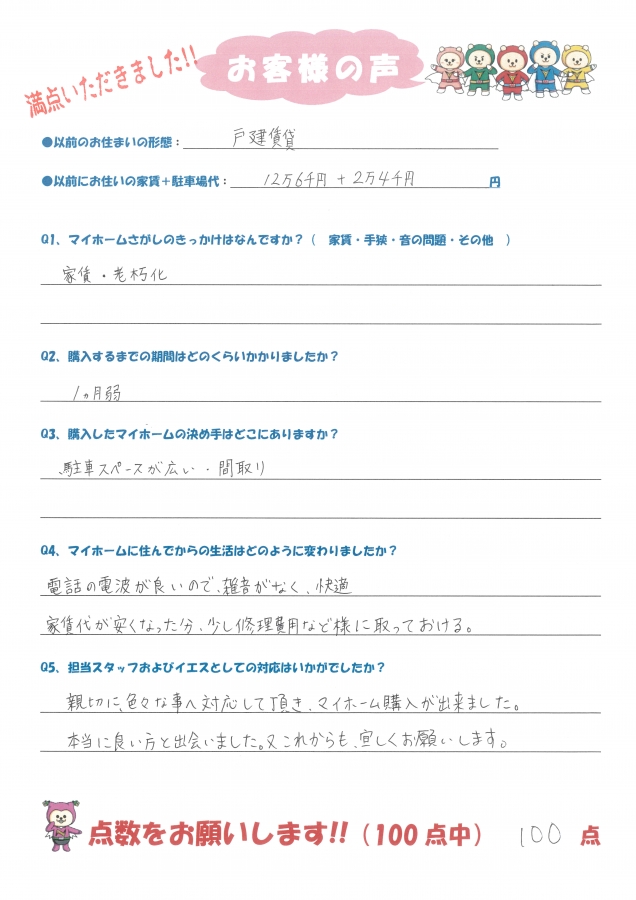 満点いただきました!!
お客様の声
●以前のお住まいの形態： 戸建賃貸
●以前にお住いの家賃＋駐車場代： 12万6千円 + 2万4千円 円
Q1、マイホームさがしのきっかけはなんですか？（ 家賃・手狭・音の問題・その他 ）
家賃・老朽化
Q2、購入するまでの期間はどのくらいかかりましたか？
1ヵ月弱
Q3、購入したマイホームの決め手はどこにありますか？
駐車スペースが広い・間取り
Q4、マイホームに住んでからの生活はどのように変わりましたか？
電話の電波が良いので、雑音がなく、快適
家賃代が安くなった分、少し修理費用など様に取っておける。
Q5、担当スタッフおよびイエスとしての対応はいかがでしたか？
親切に、色々な事へ対応して頂き、マイホーム購入が出来ました。
本当に良い方と出会いました。又これからも、宜しくお願いします。
点数をお願いします!!（100点中） 100 点